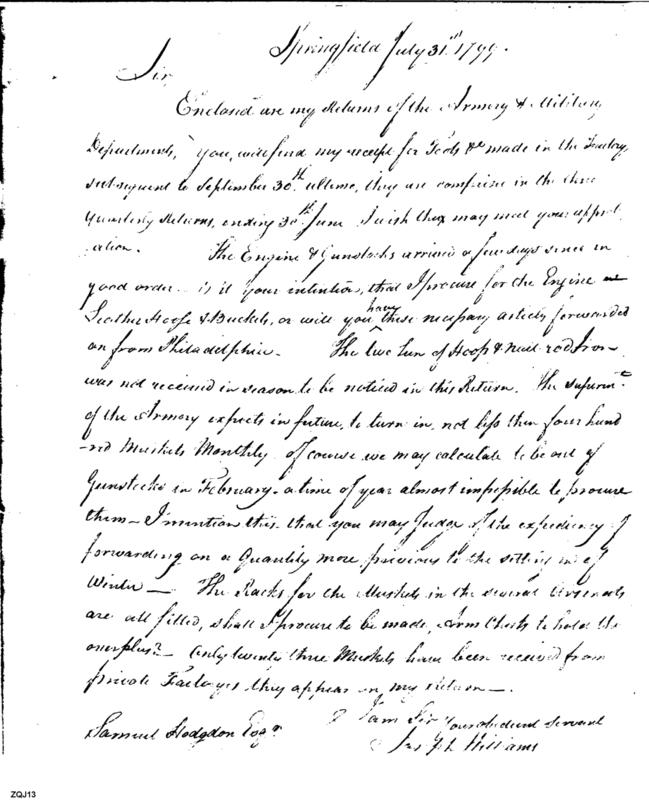 Springfield July 31st 1799.
Sir
Enclosed are my Returns of the Armory & Military
Departments, you will find my receipt for Tools &c made in the Factory
subsequent to September 30th ultimo, they are comprise in the three
Quarterly Returns, ending 30th June I wish they may meet your approb
ation. The Engine & Gunstocks arrived a few days since in
good order - is it your intention, that I procure for the Engine
Leather Hoose & Buckets, or will you have these necessary articles forwarded
on from Philadelphia - The two Tun of Hoop & nail rod Iron
was not received in season to be noticed in this Return. The superint
of the Armory expects in future, to turn in, not less than four hund
-red Muskets Monthly of course we may calculate to be out of
Gunstocks in February - a time of year almost impossible to procure
them - I mention this that you may Judge of the expediency of
forwarding on a Quantity more previous to the setting in of
Winter — The Racks for the Muskets in the several Arsenals
are all filled, shall I procure to be made, Arm Chests to hold the
overplus? - Only twenty three Muskets have been received from
private Factorys they appear in my return —.
I am Sir Your obedient servant
Samuel Hodgdon Esqr Jos Williams
ZQJ13